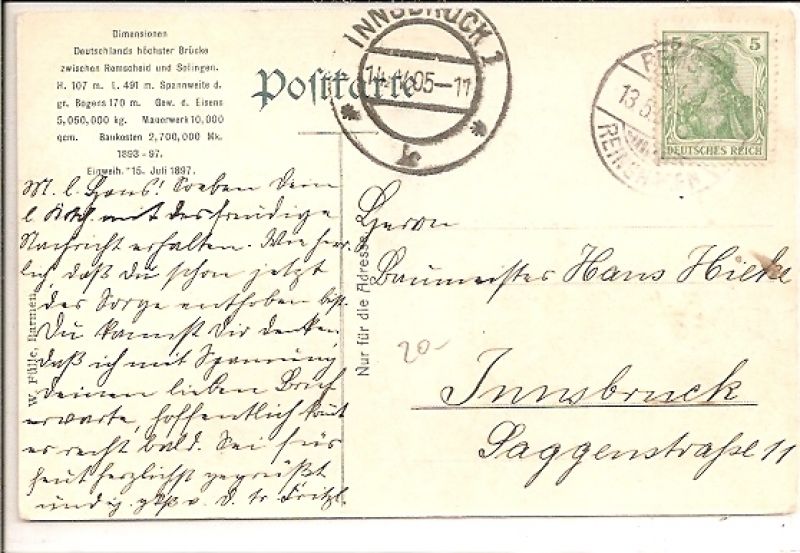 Dimensionen
Deutschlands höchster Brücke
zwischen Remscheid und Solingen.
H. 107 m. L. 491 m. Spannweite d.
gr. Bogens 170 m. Gew. d. Eisens
5,050,000 kg. Mauerwerk 10,000
qcm. Baukosten 2,700,000 Mk.
1893-97.
Einweih. 15. Juli 1897.
Postkarte
INNSBRUCK 1
05-11
5 5
DEUTSCHES REICH
13.6
M. l. Hans! Soeben Dein
l. mit der freudige
Nachricht erhalten. Wie herr-
lich daß du schon jetzt
der Sorge enthoben bist.
Du kannst Dir denken
daß ich mit Spannung
deinen lieben Brief
erwarte, hoffentlich kommt
er recht bald. Sei für
heut herzlichst gegrüßt
und v. d. tr. Fritzl.
W. Fülle, Barmen
Nur für die Adresse
Herrn
Baumeister Hans Hieke
20-
Innsbruck
Saggenstraße 11